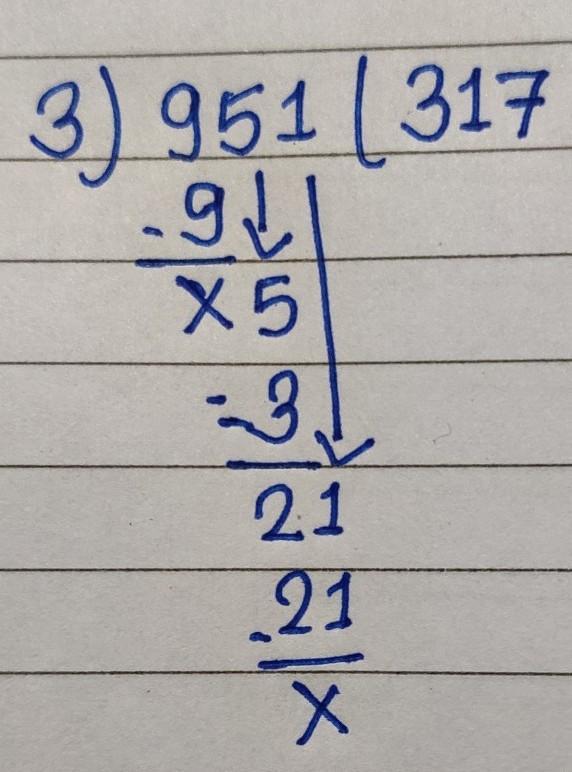 3) 951 ( 317
- 9 ↓
x 5
- 3 ↓
21
- 21
x